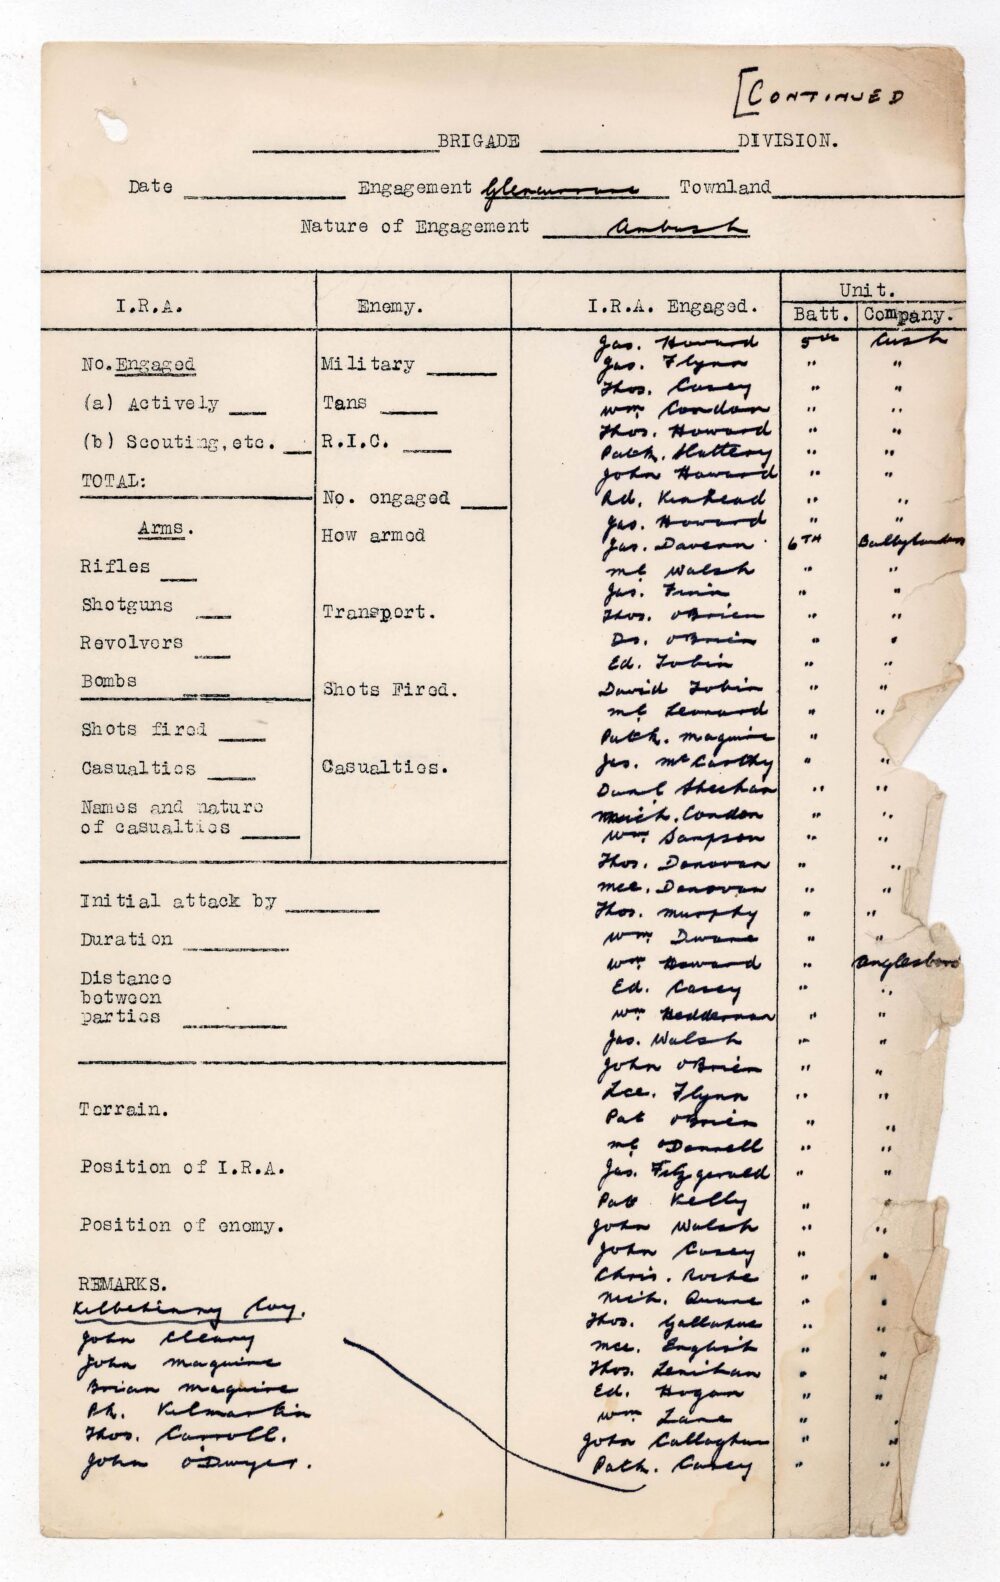 [CONTINUED
BRIGADE DIVISION.
Date Engagement Glencurrane Townland
Nature of Engagement Ambush
I.R.A. Enemy. I.R.A. Engaged. Unit.
Batt. Company.
No. Engaged
(a) Actively
(b) Scouting, etc.
TOTAL:
Arms.
Rifles
Shotguns
Revolvers
Bombs
Shots fired
Casualties
Names and nature
of casualties
Military
Tans
R.I.C.
No. engaged
How armed
Transport.
Shots Fired.
Casualties.
Initial attack by
Duration
Distance
between
parties
Terrain.
Position of I.R.A.
Position of enemy.
REMARKS.
Kilbehenny Coy.
John Cleary
John Maguire
Brian Maguire
Ph. Kilmartin
Thos. Carroll.
John O'Dwyer.
Jas. Howard 5th Cush
Jas. Flynn " "
Thos. Casey " "
Wm Condon " "
Thos. Howard " "
Patk. Slattery " "
John Howard " "
Rd. Kinhead " "
Jas. Howard " "
Jas. Davern 6TH Ballylanders
Ml Walsh " "
Jas. Finn " "
Thos. O'Brien " "
Ds. O'Brien " "
Ed. Tobin " "
David Tobin " "
Ml Leonard " "
Patk. Maguire "
Jas. McCarthy " "
Danl Sheehan " "
Mich. Condon " "
Wm Sampson " "
Thos. Donovan " "
Mce. Donovan " "
Thos. Murphy " "
Wm Dwane " "
Wm Howard " Anglesboro
Ed. Casey " "
Wm Hedderman " "
Jas. Walsh " "
John O'Brien " "
Lce. Flynn " "
Pat O'Brien " "
Ml O'Donnell " "
Jas. Fitzgerald " "
Pat Kelly " "
John Walsh " "
John Casey " "
Chris. Roche " "
Mich. Quane " "
Thos. Gallahue " "
Mce. English " "
Thos. Lenihan " "
Ed. Hogan " "
Wm Lane " "
John Callaghan " "
Patk. Casey " "